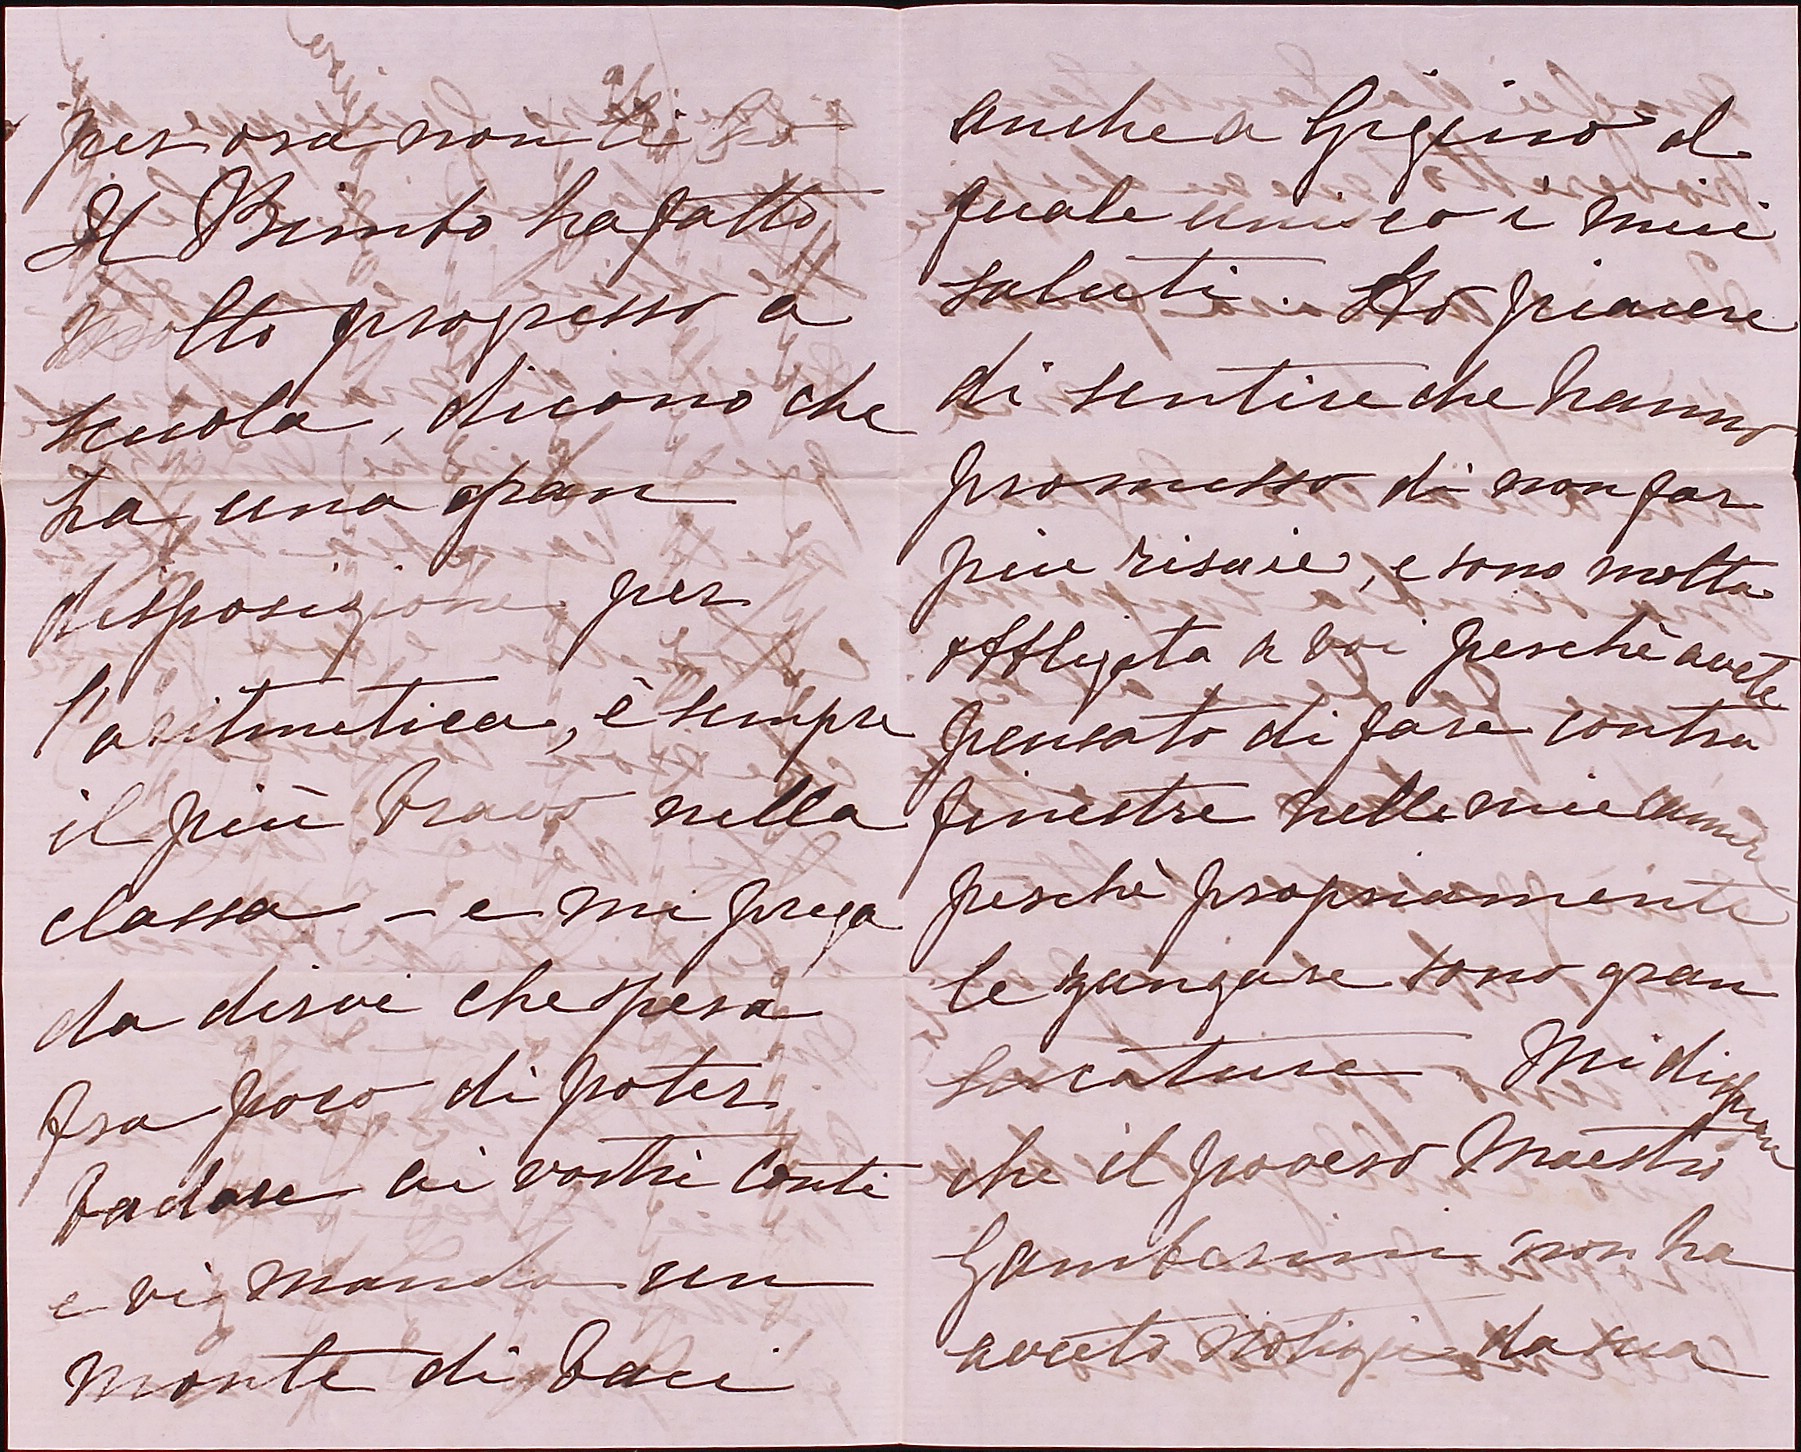 per ora non li ho
Il Bimbo ha fatto
molto progresso a
scuola, dicono che
ha una gran
disposizione per
l'aritmetica, è sempre
il più bravo nella
classa - e mi prega
da dirvi che spera
fra poco di poter
badare ai vostri conti
e vi manda un
monte di baci
anche a Gigino al
quale unisco i miei
saluti. Ho piacere
di sentire che hanno
promesso di non far
piu risaie, e sono molta
obbligata a voi perchè avete
pensato di fare contra
finestre nelle mie camere
perchè propriamente
le zanzare sono gran
seccature. Mi dispiace
che il povero Maestro
Gamberini non ha
avuto notizie da sua